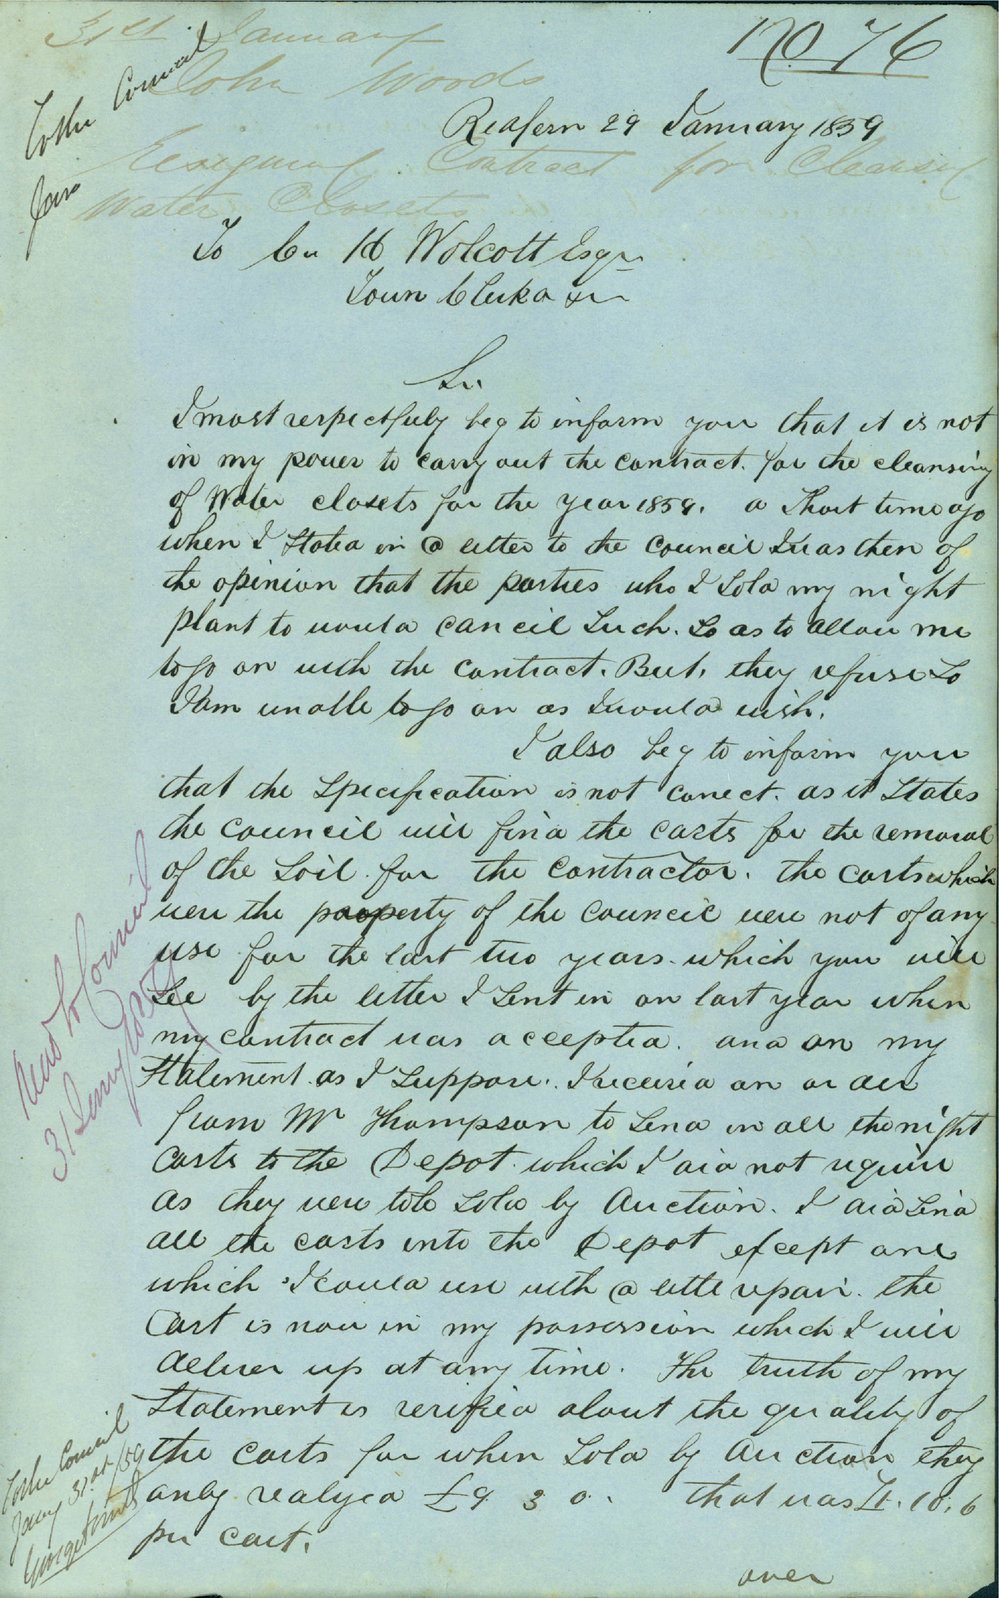 No 76
31st January
John Woods
Resigning Contract for Cleansing
Water Closets
To the Council
Jan
Redfern 29 January 1859
To C H Wolcott Esqr
Town Clerk
Sir
I most respectfuly beg to inform you that it is not
in my power to carry out the contract. for the cleansing
of Water closets for the year 1859. a Short time ago
when I Stated in a letter to the Council I was then of
the opinion that the parties who I Sold my night
plant to would cancil Such. So as to allow me
to go on with the contract. But. they refuse So
I am unable to go on as I would wish.
I also beg to inform you
that the Specification is not correct. as it States
the Council will find the carts for the removal
of the Soil for the contractor. the carts which
were the property of the Council were not of any
use for the last two years. which you will
See by the letter I Sent in on last year when
my contract was accepted. and on my
Statement as I Suppose. I received an order
from Mr Thompson to Send in all the night
carts to the Depot which I did not require
as they were to be Sold by Auction. I did Send
all the carts into the Depot except one
which I could use with a little repair. the
Cart is now in my possession which I will
deliver up at any time. The truth of my
Statement is verified about the quality of
the carts for when Sold by Auction they
only realyed £9 3 0. that was £1. 10. 6
per cart.
over
Read to Council
31 Jany
To the Council
Jany 31st /59